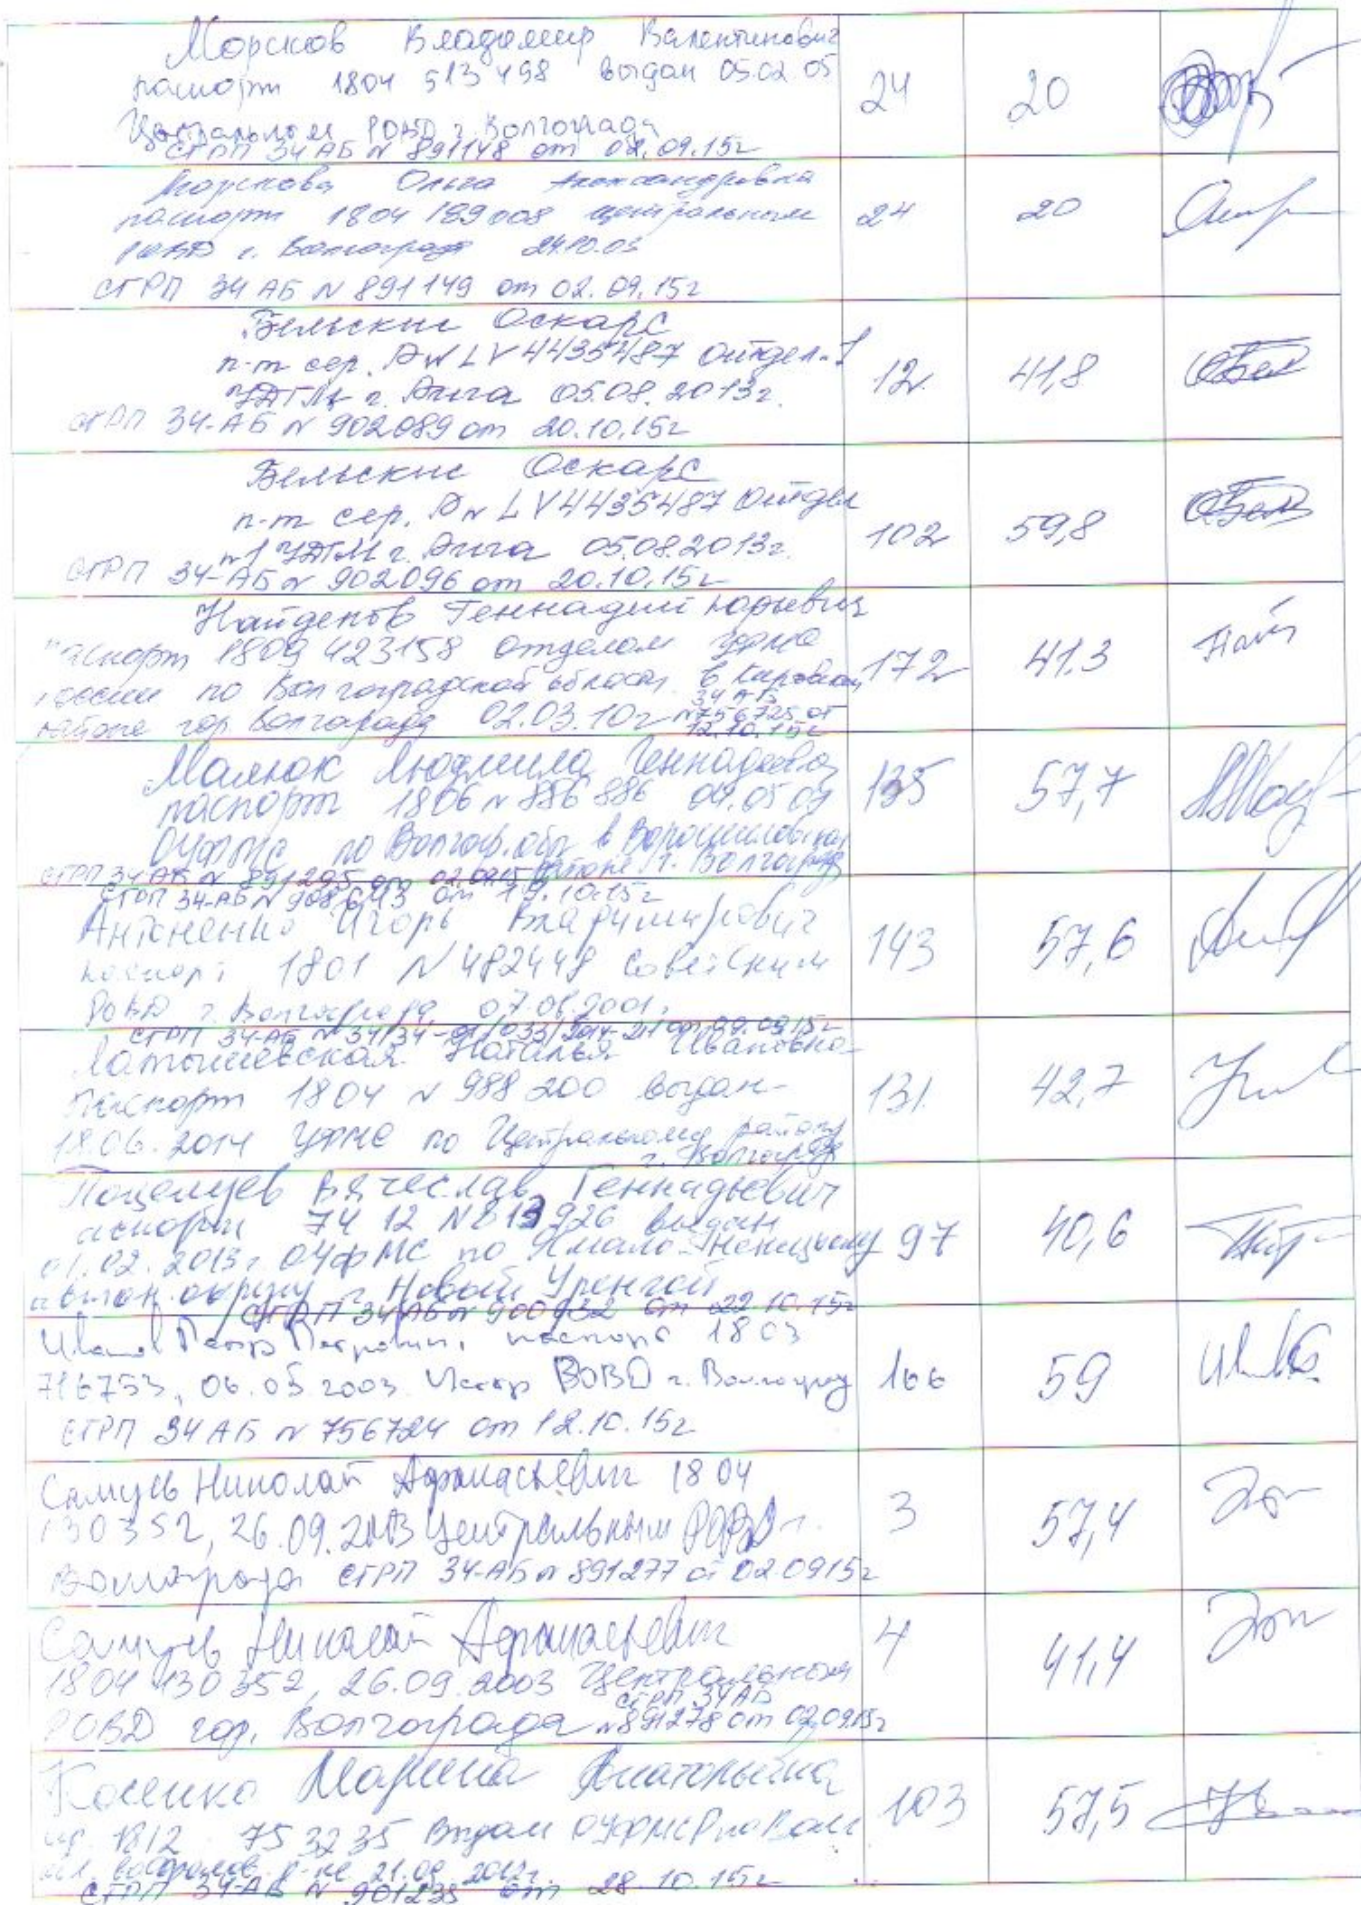 Морсков Владимир Валентинович
паспорт 1804 513498 выдан 05.02.05 24 20
Центральном РОВД г. Волгограда
СГРП 34 АБ N 891148 от 02.09.15г
Морскова Ольга Александровна
паспорт 1804 189008 центральным 24 20
РОВД г. Волгограда 24.10.03
СГРП 34 АБ N 891149 от 02.09.15г
Бельскис Оскарс
п-т сер. LV4435487 отдел. 1 12 41,8
г. Рига 05.08.2013г.
СГРП 34-АБ N 902089 от 20.10.15г
Бельскис Оскарс
п-т сер. LV4435487 Отдел 102 59,8
N1 г. Рига 05.08.2013г.
СГРП 34-АБ N 902096 от 20.10.15г
Найденов Геннадий Юрьевич
паспорт 1809 423158 отделом уфмс 172 41.3
россии по Волгоградской области в Кировском
районе гор Волгограда 02.03.10г 34 АБ
N756725 от 12.10.15г
Малюк Людмила Геннадьевна 135 57,7
паспорт 1806 N 886 886 04.05.09
ОУФМС по Волгогр. обл в Ворошиловском
районе г. Волгограда
СГРП 34 АБ N 891295 от
СГРП 34-АБ N 908643 от 19.10.15г
Антоненко Игорь Владимирович 143 57,6
паспорт 1801 N 482448 Советским
РОВД г. Волгограда 07.08.2001.
СГРП 34-АБ N 34/34-01/033/2014-
Латышевская Наталья Ивановна
паспорт 1804 N 988 200 выдан 131. 42,7
18.06.2014 УФМС по Центральному району
г. Волгограда
Поцелуев Вячеслав Геннадьевич
паспорт 74 12 N813926 выдан 97 40,6
01.02.2013г ОУФМС по Ямало-Ненецкому
автон. округу г. Новый Уренгой
СГРП 34 АБ N 900932 от 22.10.15г
Иванов Петр Петрович, паспорт 1803
716753, 06.05.2003. РОВД г. Волгоград 166 59
СГРП 34 АБ N 756724 от 12.10.15г
Николай Афанасьевич 1804 3 57,4
130352, 26.09.2003 Центральным РОВД г.
Волгограда СГРП 34-АБ N 891277 от 02.0915г
Николай Афанасьевич 4 41,4
1804 130352, 26.09.2003 Центральном
РОВД гор. Волгограда СГРП 34АБ
N891278 от 02.0915г
Косенко Марина Анатольевна 103 57,5
1812 753235 Выдан ОУФМС по Волг
обл. р-не 21.09.2012г.
СГРП 34-АБ N 901235 от 28.10.15г